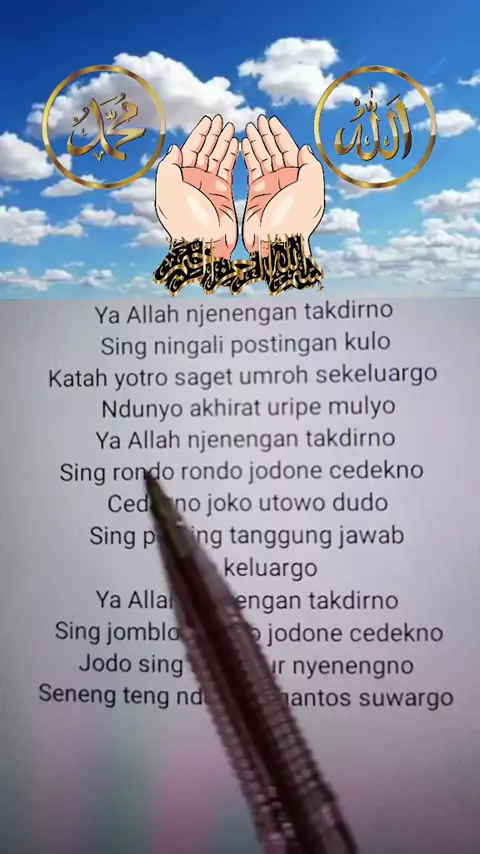 محمد
الله
بسم الله الرحمن الرحيم
Ya Allah njenengan takdirno
Sing ningali postingan kulo
Katah yotro saget umroh sekeluargo
Ndunyo akhirat uripe mulyo
Ya Allah njenengan takdirno
Sing rondo rondo jodone cedekno
joko utowo dudo
Sing tanggung jawab
keluargo
Ya takdirno
Sing jodone cedekno
Jodo sing nyenengno
Seneng teng suwargo